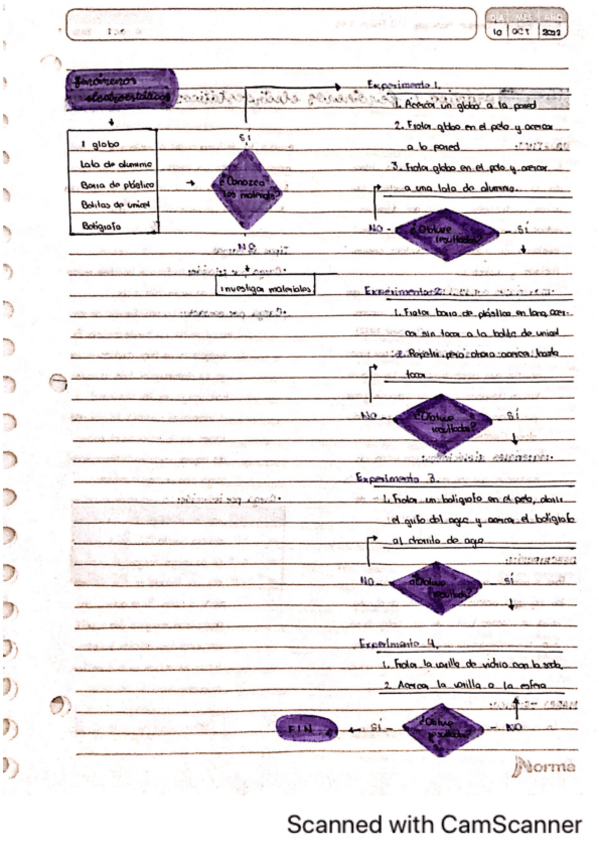 DIA MES AÑO
10 OCT 2022
fenómenos
electroestáticos
1 globo
Lata de aluminio
Barra de plástico
Bolitas de unicel
Boligrafo
SI
¿Conozco
los materiales?
NO
Investigar materiales
Experimento 1.
1. Acercar un globo a la pared
2. Frotar globo en el pelo y acercar
a la pared
3. Frotar globo en el pelo y acercar
a una lata de aluminio.
NO
¿Obtuve
resultados?
SÍ
Experimento 2.
1. Frotar barra de plástico en lana, acer-
car sin tocar a la bolita de unicel
2. Repetir pero ahora acercar hasta
tocar
NO
¿Obtuve
resultados?
SÍ
Experimento 3.
1. Frotar un boligrafo en el pelo, abrir
el grifo del agua y acercar el boligrafo
al chorrito de agua
NO
¿Obtuve
resultados?
SÍ
Experimento 4.
1. Frotar la varilla de vidrio con la seda,
2. Acercar la varilla a la esfera
FIN
SÍ
¿Obtuve
resultados?
NO
Norma
Scanned with CamScanner